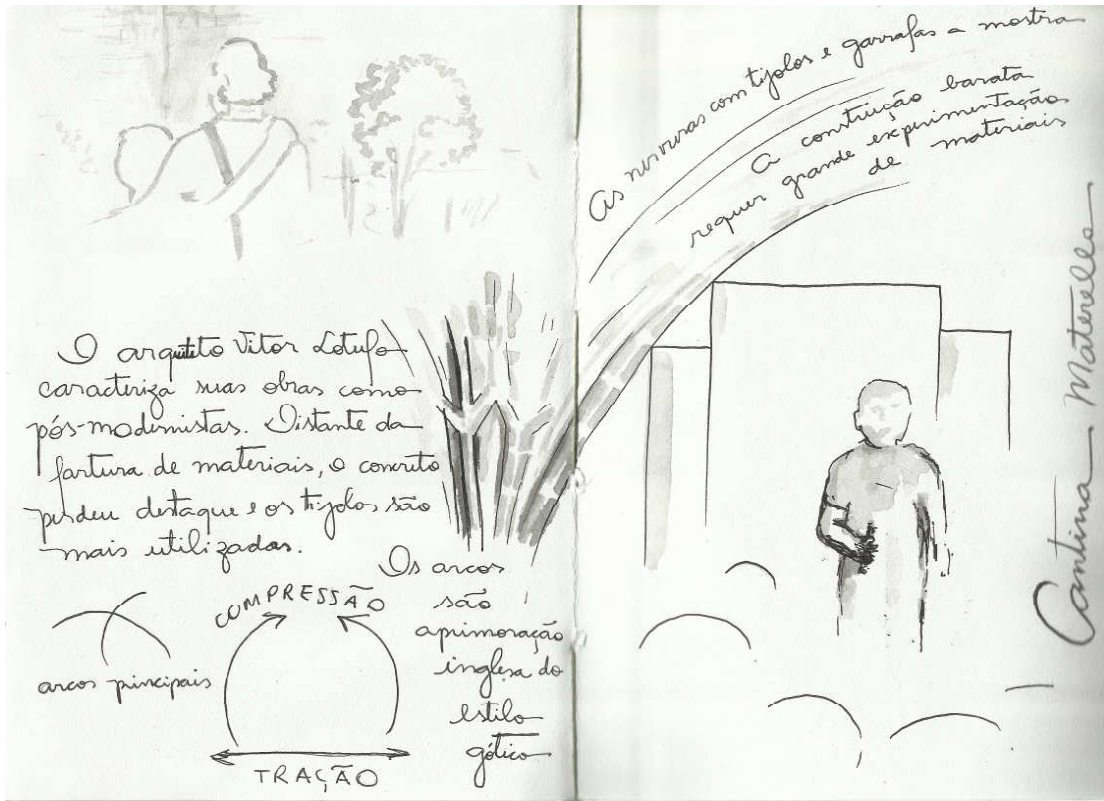 O arquiteto Vitor Lotufo
caracteriza suas obras como
pós-modernistas. Distante da
fartura de materiais, o concreto
perdeu destaque e os tijolos são
mais utilizados.
arcos principais
COMPRESSÃO
TRAÇÃO
Os arcos
são
aprimoração
inglesa do
estilo
gótico
As nervuras com tijolos e garrafas a mostra
A construção barata
requer grande experimentação
de materiais
Cantina Materello